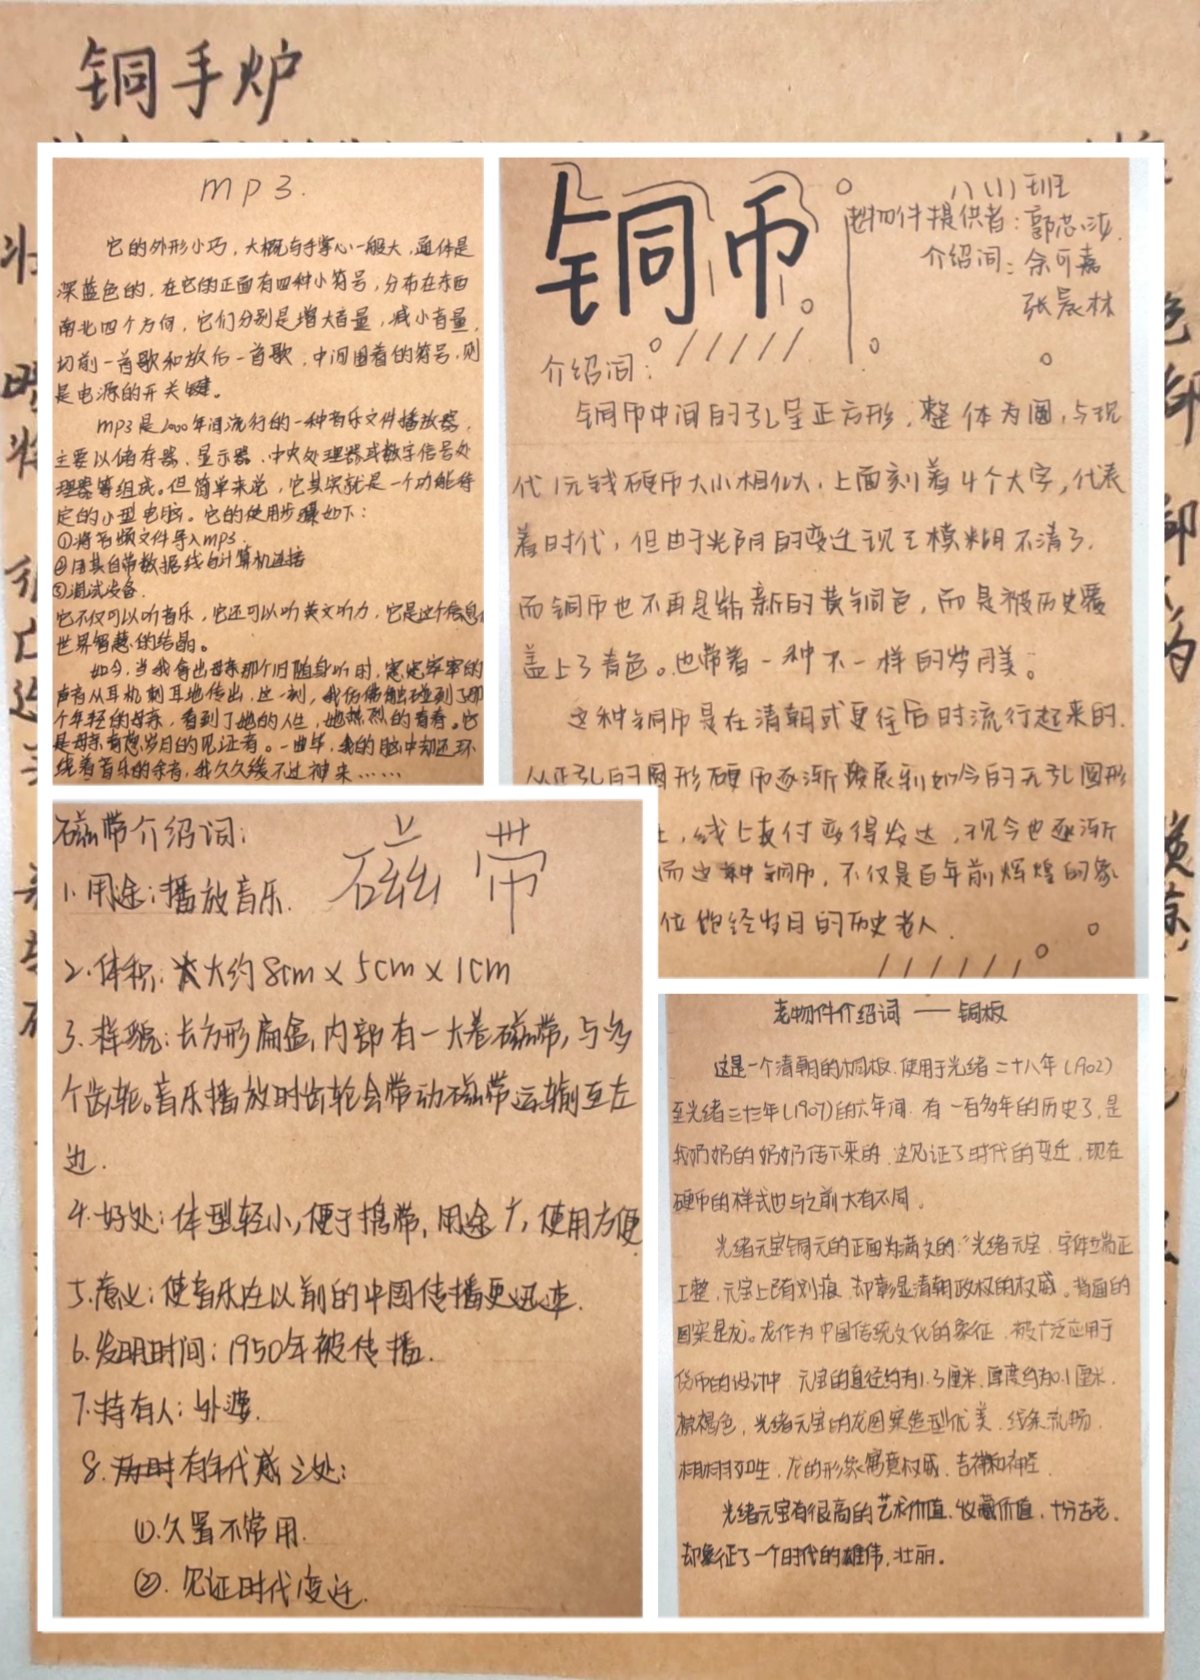 铜手炉
mp3.
它的外形小巧，大概与手掌心一般大，通体是
深蓝色的，在它的正面有四种小符号，分布在东西
南北四个方向，它们分别是增大音量，减小音量，
切前一首歌和放后一首歌，中间围着的符号，则
是电源的开关键。
mp3是2000年间流行的一种音乐文件播放器，
主要以储存器、显示器、中央处理器或数字信号处
理器等组成。但简单来说，它其实就是一个功能特
定的小型电脑。它的使用步骤如下：
①将音频文件导入mp3.
②用其自带数据线与计算机连接
③调试设备.
它不仅可以听音乐，它还可以听英文听力，它是这个信息
世界智慧的结晶。
如今，当我拿出母亲那个旧随身听时，窸窸窣窣的
声音从耳机刺耳地传出，这一刻，我仿佛触碰到了那
个年轻的母亲，看到了她的人生，她热烈的青春。它
是母亲有趣岁月的见证者。一曲毕，我的脑中却还环
绕着音乐的余音，我久久缓不过神来……
铜币
八（1）班
老物件提供者：郭芯
介绍词：余可嘉
张晟林
介绍词：
铜币中间的孔呈正方形，整体为圆，与现
代1元钱硬币大小相似，上面刻着4个大字，代表
着时代，但由于光阴的变迁现已模糊不清了.
而铜币也不再是崭新的黄铜色，而是被历史覆
盖上了青色。也带着一种不一样的岁月美。
这种铜币是在清朝或更往后时流行起来的.
从正孔的圆形硬币逐渐发展到如今的无孔圆形
，线上支付变得发达，现今也逐渐
而这种铜币，不仅是百年前辉煌的象
位饱经岁月的历史老人.
磁带介绍词：
磁带
1.用途：播放音乐.
2.体积：大约8cm×5cm×1cm
3.样貌：长方形扁盒，内部有一大卷磁带，与多
个齿轮。音乐播放时齿轮会带动磁带运输至左
边.
4.好处：体型轻小，便于携带，用途广，使用方便.
5.意义：使音乐在以前的中国传播更迅速.
6.发明时间：1950年被传播.
7.持有人：外婆.
8.有年代感之处：
①.久置不常用.
②.见证时代变迁.
老物件介绍词——铜板
这是一个清朝的铜板.使用于光绪二十八年(1902)
至光绪三十三年(1907)的六年间.有一百多年的历史了.是
我奶奶的奶奶传下来的.这见证了时代的变迁.现在
硬币的样式也与之前大有不同。
光绪元宝铜元的正面为满文的："光绪元宝.字体端正
工整.元宝上已有划痕.却彰显清朝政权的权威。背面的
图案是龙。龙作为中国传统文化的象征.被广泛应用于
货币的设计中.元宝的直径约有1.3厘米.厚度约有0.1厘米.
棕褐色，光绪元宝的龙图案造型优美、线条流畅.
栩栩如生.龙的形象寓意权威、吉祥和神圣.
光绪元宝有很高的艺术价值.收藏价值，十分古老，
却象征了一个时代的雄伟、壮丽。